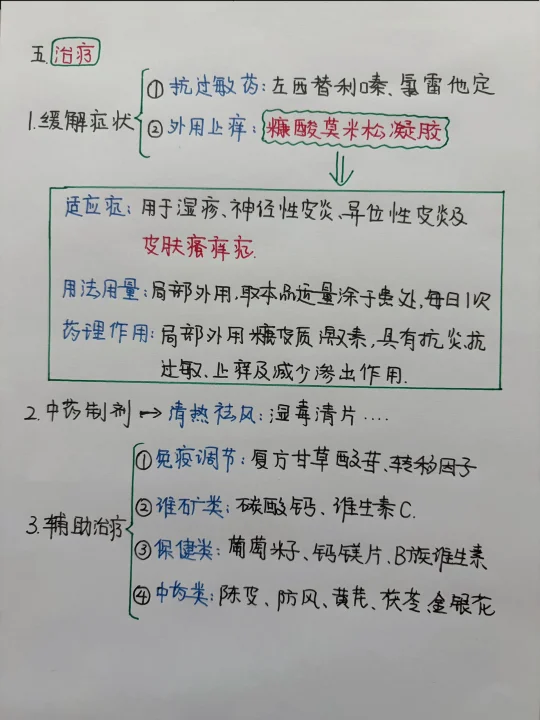 五.治疗
1.缓解症状
①抗过敏药:左西替利嗪、氯雷他定
②外用止痒:糠酸莫米松凝胶
适应症:用于湿疹、神经性皮炎、异位性皮炎及
皮肤瘙痒症.
用法用量:局部外用,取本品适量涂于患处,每日1次
药理作用:局部外用糖皮质激素,具有抗炎、抗
过敏、止痒及减少渗出作用.
2.中药制剂→清热祛风:湿毒清片....
3.辅助治疗
①免疫调节:复方甘草酸苷、转移因子
②维矿类:碳酸钙、维生素C.
③保健类:葡萄籽、钙镁片、B族维生素
④中药类:陈皮、防风、黄芪、茯苓、金银花